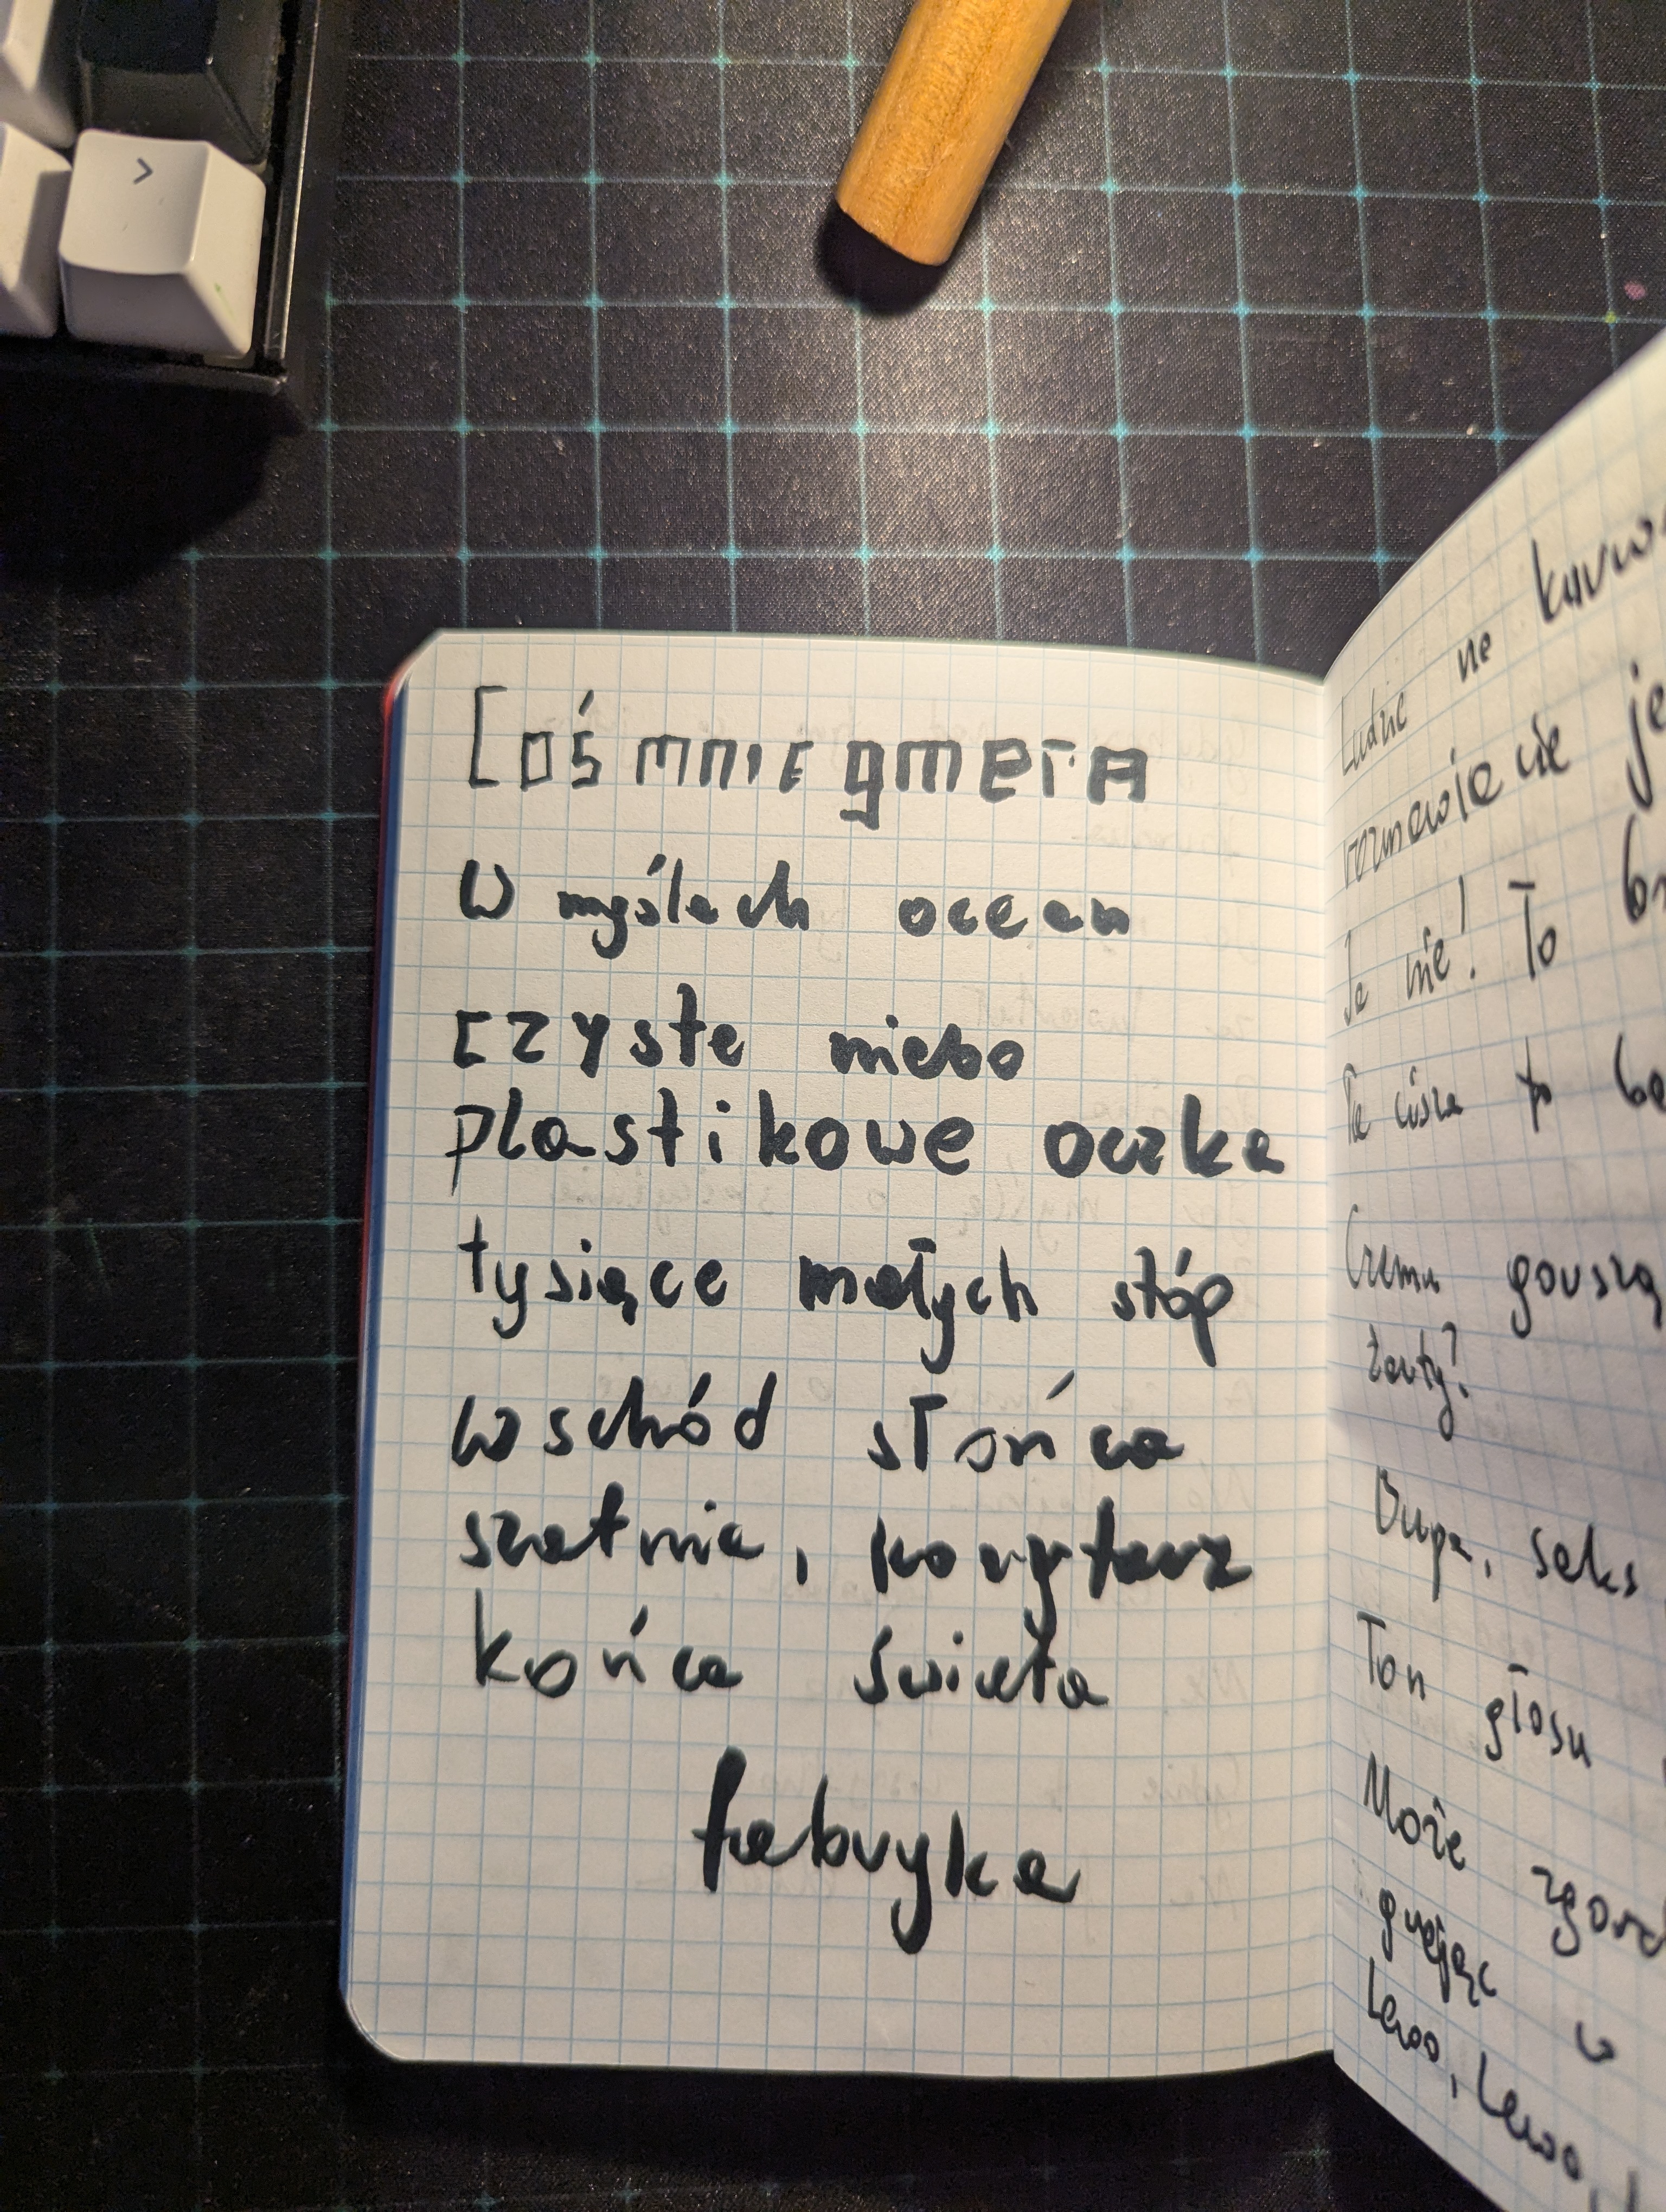 >
Coś mnie gmera
W myślach ocean
czyste niebo
plastikowe oczka
tysiące małych stóp
wschód słońca
szatnia, korytarz
końca świata
fabryka
Ludzie ne
je
Ja nie! To
Ta cisza to
Czemu
żarty?
Dupa, seks
Ton głosu
Może
grając w
Lewo, Lewo,